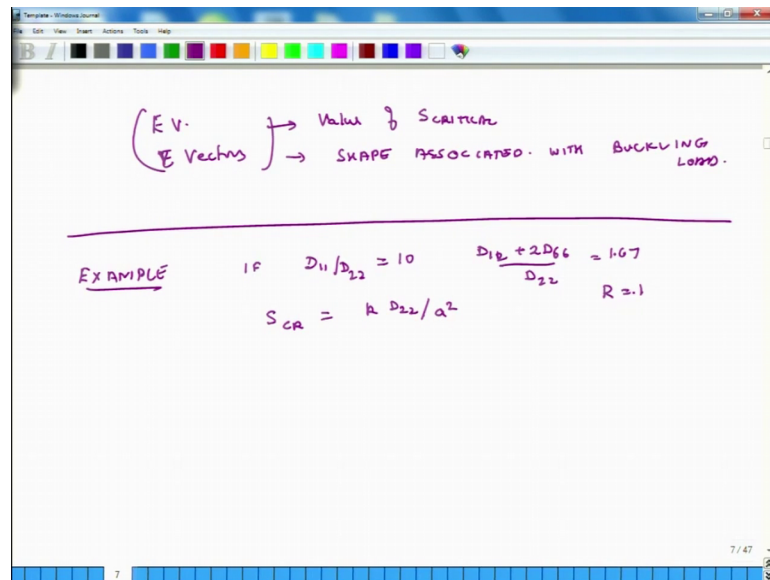 Template - Windows Journal
File Edit View Insert Actions Tools Help
B I
E V. → Value of SCRITICAL
E Vectors → SHAPE ASSOCIATED. WITH BUCKLING LOAD.
EXAMPLE IF D11/D22 = 10 D12 + 2D66 / D22 = 1.67
R = .1
SCR = k D22/a²
7 / 47
7